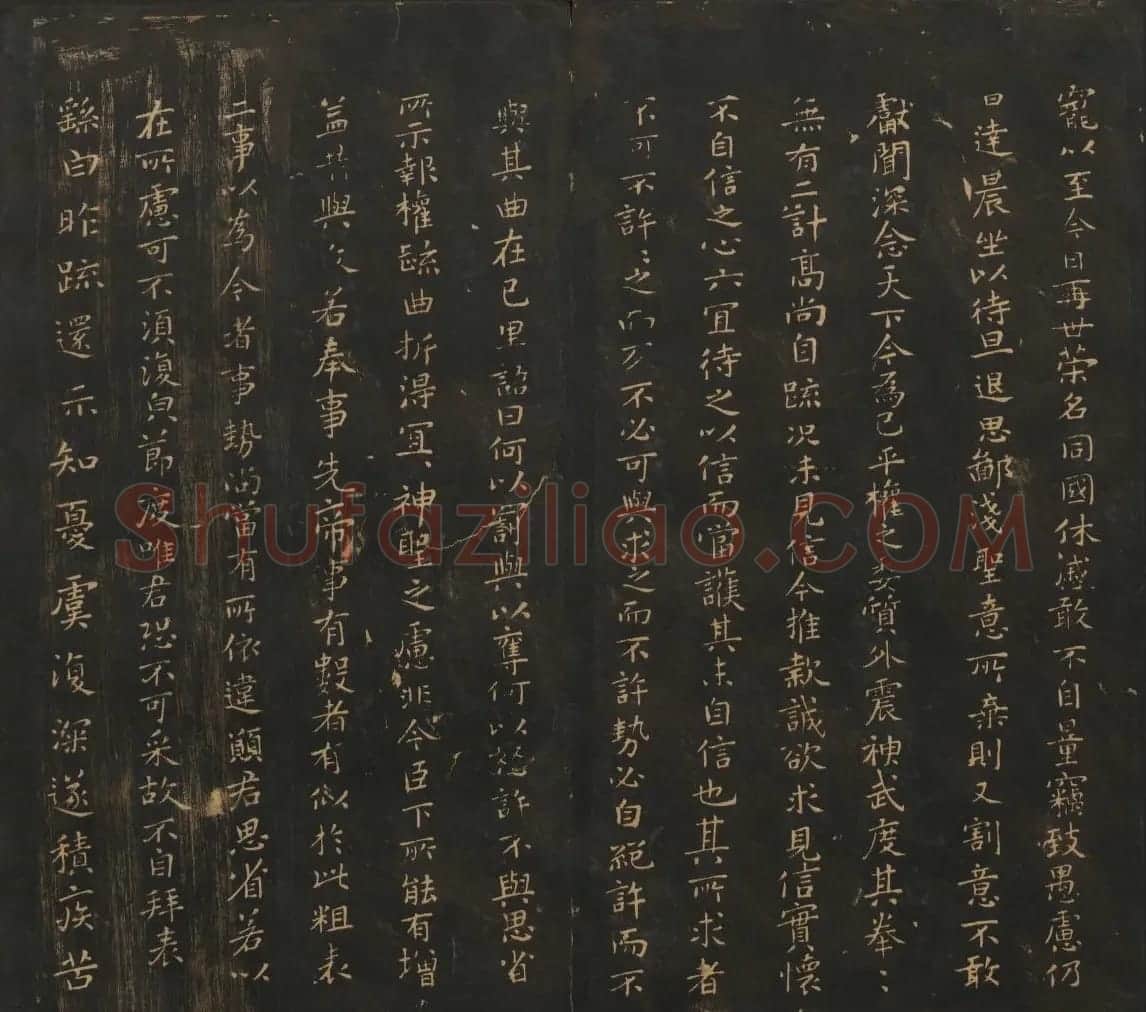 寵以至今日再世榮名同國休慼敢不自量竊致愚慮仍
日達晨坐以待旦退思鄙淺聖意所棄則又割意不敢
獻聞深念天下今為已平權之委質外震神武度其拳〻
無有二計高尚自疏況未見信今推款誠欲求見信實懷
不自信之心亦宜待之以信而當護其未自信也其所求者
不可不許〻之而反不必可與求之而不許勢必自絕許而不
與其曲在己里諺曰何以罰與以奪何以怒許不與思省
所示報權疏曲折得宜神聖之慮非今臣下所能有增
益昔與文若奉事先帝事有數者有似於此粗表
二事以為今者事勢尚當有所依違願君思省若以
在所慮可不須復貞節度唯君恐不可采故不自拜表
繇白昨疏還示知憂虞復深遂積疾苦
Shufaziliao.COM